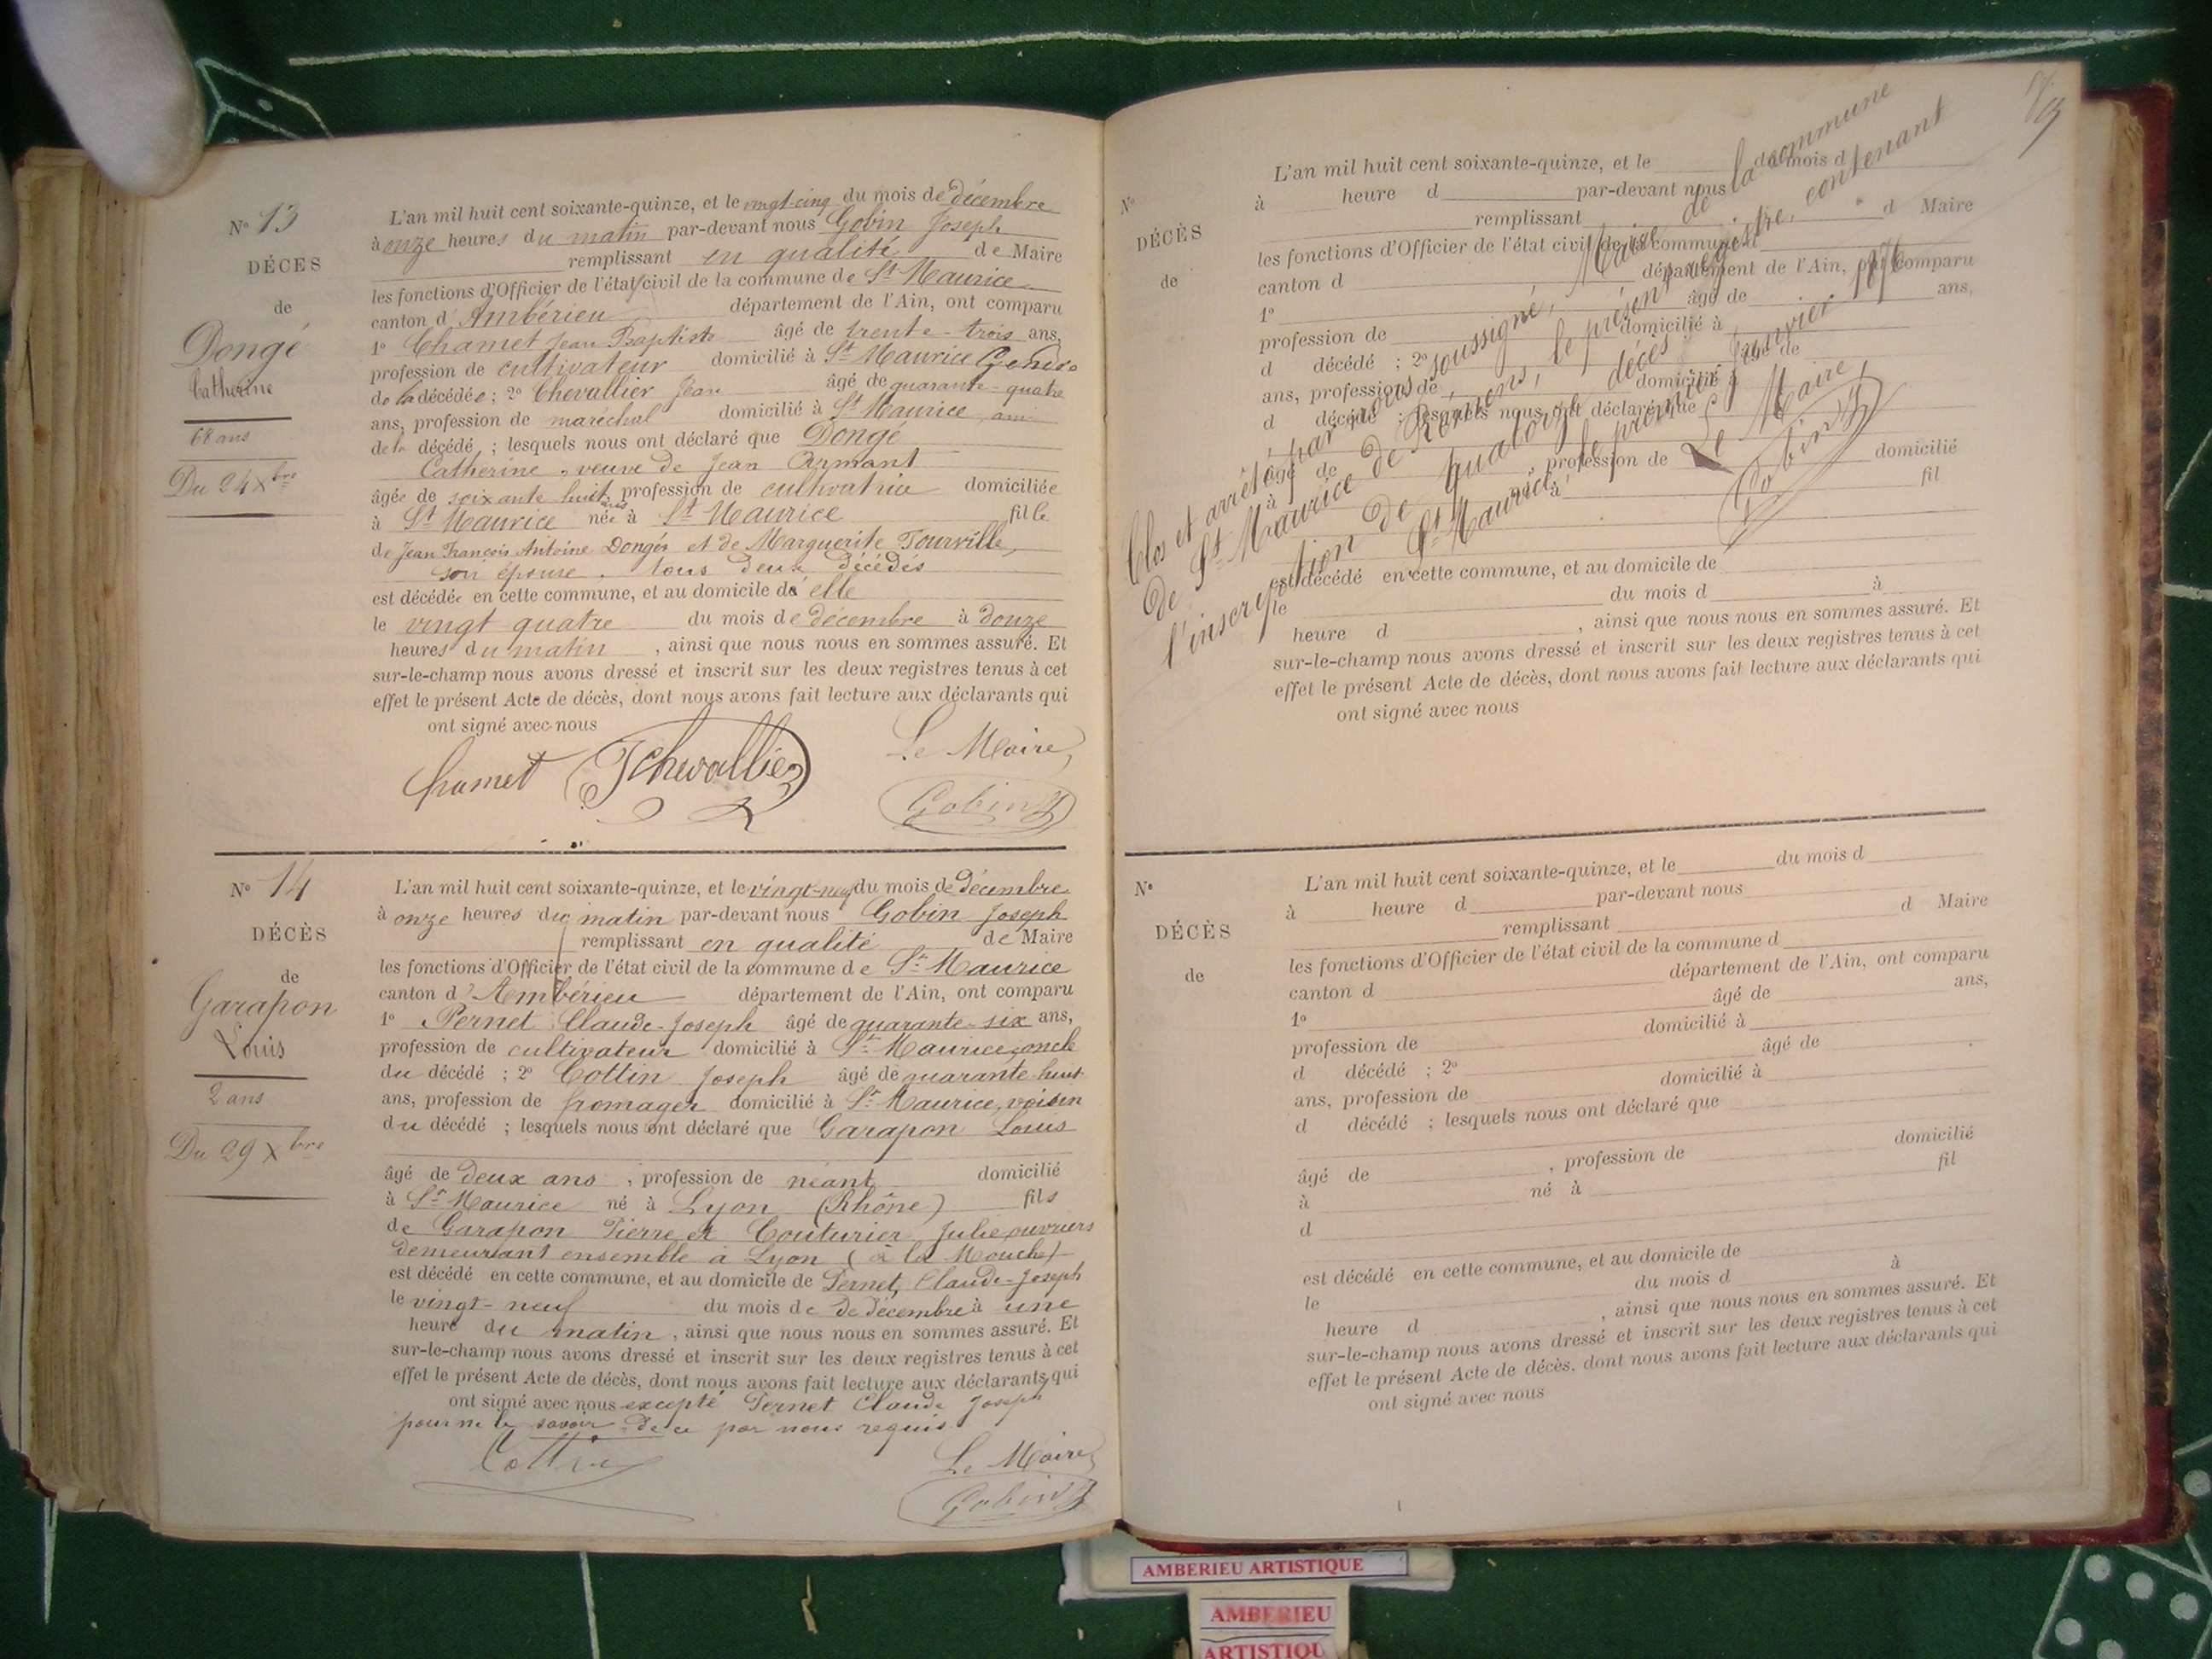 N° 13
DÉCÈS
de
Dongé
Catherine
68 ans
Du 24 Xbre
L'an mil huit cent soixante-quinze, et le vingt-cinq du mois de décembre
à onze heures du matin par-devant nous Gobin Joseph
remplissant en qualité de Maire
les fonctions d'Officier de l'état civil de la commune de St Maurice
canton d'Ambérieu département de l'Ain, ont comparu
1° Chamet Jean Baptiste âgé de trente-trois ans,
profession de cultivateur domicilié à St Maurice Gendre
de la décédée ; 2° Chevallier Jean âgé de quarante-quatre
ans, profession de maréchal domicilié à St Maurice, ami
de la décédé ; lesquels nous ont déclaré que Dongé
Catherine, veuve de Jean Armant
âgée de soixante huit ans, profession de cultivatrice domiciliée
à St Maurice née à St Maurice fille
de Jean François Antoine Dongés et de Marguerite Tourville,
son épouse, tous deux décédés
est décédée en cette commune, et au domicile d'elle
le vingt quatre du mois de décembre à douze
heures du matin, ainsi que nous nous en sommes assuré. Et
sur-le-champ nous avons dressé et inscrit sur les deux registres tenus à cet
effet le présent Acte de décès, dont nous avons fait lecture aux déclarants qui
ont signé avec nous
Chamet JChevallier Le Maire,
Gobin
N° 14
DÉCÈS
de
Garapon
Louis
2 ans
Du 29 Xbre
L'an mil huit cent soixante-quinze, et le vingt-neuf du mois de décembre
à onze heures du matin par-devant nous Gobin Joseph
remplissant en qualité de Maire
les fonctions d'Officier de l'état civil de la commune de St Maurice
canton d'Ambérieu département de l'Ain, ont comparu
1° Pernet Claude-Joseph âgé de quarante-six ans,
profession de cultivateur domicilié à St Maurice, oncle
du décédé ; 2° Cottin Joseph âgé de quarante-huit
ans, profession de fromager domicilié à St Maurice, voisin
du décédé ; lesquels nous ont déclaré que Garapon Louis
âgé de deux ans, profession de néant domicilié
à St Maurice né à Lyon (Rhône) fils
de Garapon Pierre et Couturier Julie, ouvriers
demeurant ensemble à Lyon (à la Mouche)
est décédé en cette commune, et au domicile de Pernet, Claude-Joseph
le vingt-neuf du mois de de décembre à une
heure du matin, ainsi que nous nous en sommes assuré. Et
sur-le-champ nous avons dressé et inscrit sur les deux registres tenus à cet
effet le présent Acte de décès, dont nous avons fait lecture aux déclarants qui
ont signé avec nous excepté Pernet Claude Joseph
pour ne le savoir de ce par nous requis
Cottin Le Maire,
Gobin
N°
DÉCÈS
de
L'an mil huit cent soixante-quinze, et le du mois d
à heure d par-devant nous
remplissant d Maire
les fonctions d'Officier de l'état civil de la commune d
canton d département de l'Ain, ont comparu
1° âgé de ans,
profession de domicilié à
d décédé ; 2° âgé de
ans, profession de domicilié à
d décédé ; lesquels nous ont déclaré que
âgé de , profession de domicilié
à né à fil
est décédé en cette commune, et au domicile de
le du mois d à
heure d , ainsi que nous nous en sommes assuré. Et
sur-le-champ nous avons dressé et inscrit sur les deux registres tenus à cet
effet le présent Acte de décès, dont nous avons fait lecture aux déclarants qui
ont signé avec nous
Clos et arrêté par nous soussigné, Maire de la commune
de St Maurice de Rémens, le présent registre, contenant
l'inscription de quatorze décès
St Maurice, le premier janvier 1876
Le Maire,
Gobin
N°
DÉCÈS
de
L'an mil huit cent soixante-quinze, et le du mois d
à heure d par-devant nous
remplissant d Maire
les fonctions d'Officier de l'état civil de la commune d
canton d département de l'Ain, ont comparu
1° âgé de ans,
profession de domicilié à
d décédé ; 2° âgé de
ans, profession de domicilié à
d décédé ; lesquels nous ont déclaré que
âgé de , profession de domicilié
à né à fil
d
est décédé en cette commune, et au domicile de
le du mois d à
heure d , ainsi que nous nous en sommes assuré. Et
sur-le-champ nous avons dressé et inscrit sur les deux registres tenus à cet
effet le présent Acte de décès, dont nous avons fait lecture aux déclarants qui
ont signé avec nous
AMBERIEU ARTISTIQUE
AMBERIEU
ARTISTIQU